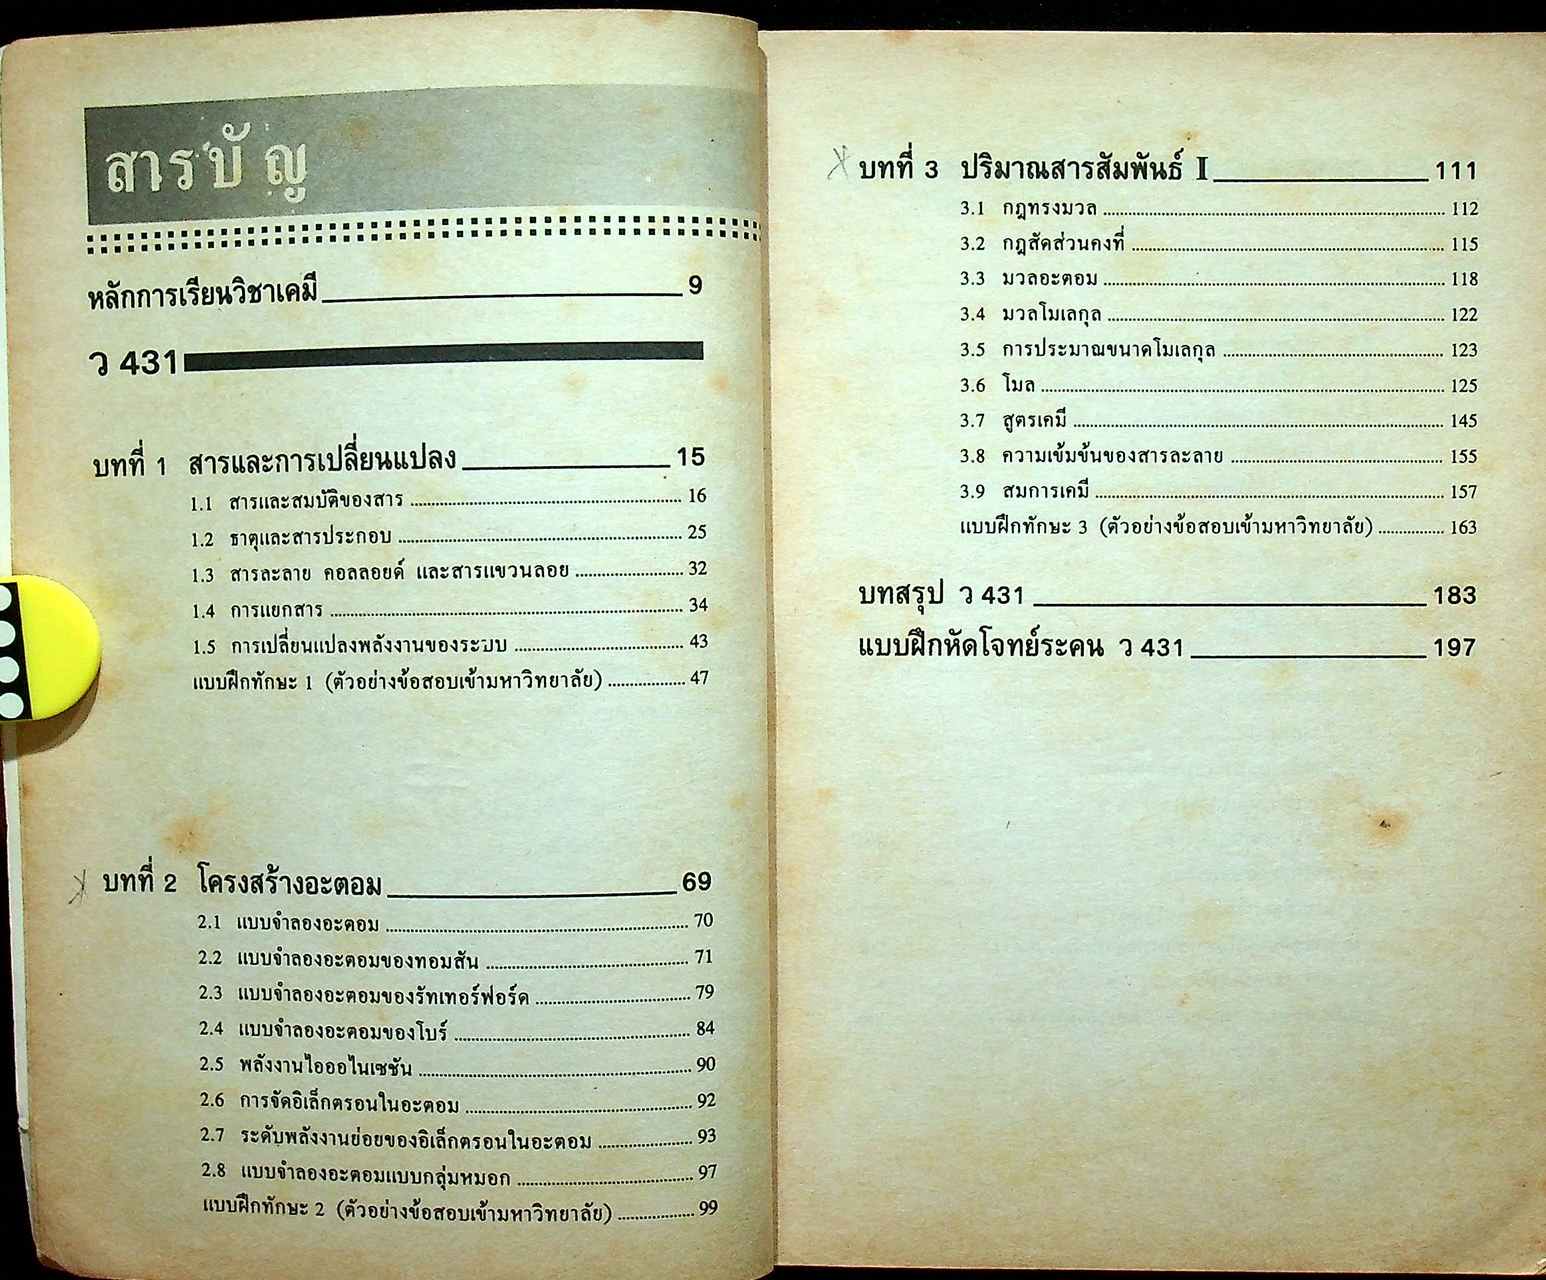 สารบัญ
หลักการเรียนวิชาเคมี 9
ว 431
บทที่ 1 สารและการเปลี่ยนแปลง 15
1.1 สารและสมบัติของสาร 16
1.2 ธาตุและสารประกอบ 25
1.3 สารละลาย คอลลอยด์ และสารแขวนลอย 32
1.4 การแยกสาร 34
1.5 การเปลี่ยนแปลงพลังงานของระบบ 43
แบบฝึกทักษะ 1 (ตัวอย่างข้อสอบเข้ามหาวิทยาลัย) 47
บทที่ 2 โครงสร้างอะตอม 69
2.1 แบบจำลองอะตอม 70
2.2 แบบจำลองอะตอมของทอมสัน 71
2.3 แบบจำลองอะตอมของรัทเทอร์ฟอร์ด 79
2.4 แบบจำลองอะตอมของโบร์ 84
2.5 พลังงานไอออไนเซชัน 90
2.6 การจัดอิเล็กตรอนในอะตอม 92
2.7 ระดับพลังงานย่อยของอิเล็กตรอนในอะตอม 93
2.8 แบบจำลองอะตอมแบบกลุ่มหมอก 97
แบบฝึกทักษะ 2 (ตัวอย่างข้อสอบเข้ามหาวิทยาลัย) 99
บทที่ 3 ปริมาณสารสัมพันธ์ I 111
3.1 กฎทรงมวล 112
3.2 กฎสัดส่วนคงที่ 115
3.3 มวลอะตอม 118
3.4 มวลโมเลกุล 122
3.5 การประมาณขนาดโมเลกุล 123
3.6 โมล 125
3.7 สูตรเคมี 145
3.8 ความเข้มข้นของสารละลาย 155
3.9 สมการเคมี 157
แบบฝึกทักษะ 3 (ตัวอย่างข้อสอบเข้ามหาวิทยาลัย) 163
บทสรุป ว 431 183
แบบฝึกหัดโจทย์ระคน ว 431 197